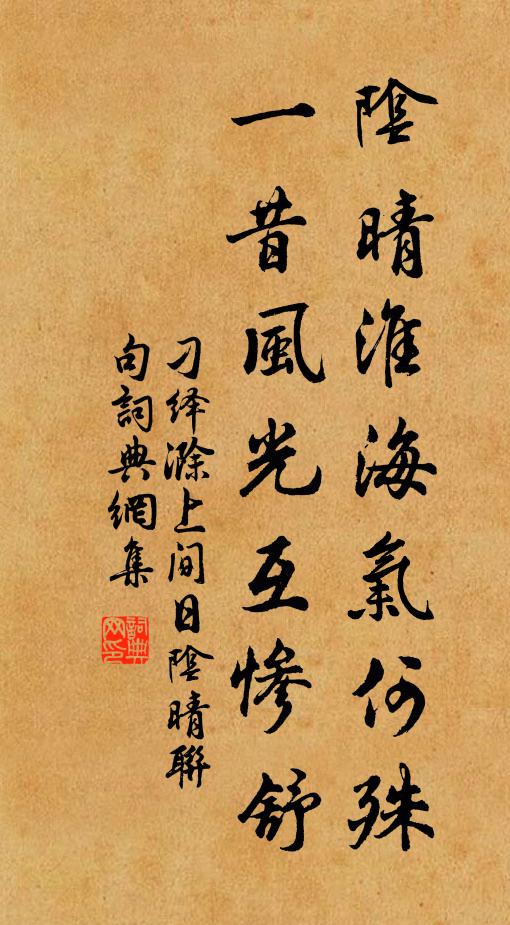 陰晴淮海氣何殊
一昔風光互慘舒
刁绎滁上间日陰晴聯
句詞典網集
詞典网印